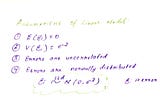 Assumptions of Linear Model
① E(εᵢ)=0
② V(εᵢ)=σ²
③ Errors are uncorrelated
④ Errors are normally distributed
N(0,σ²)